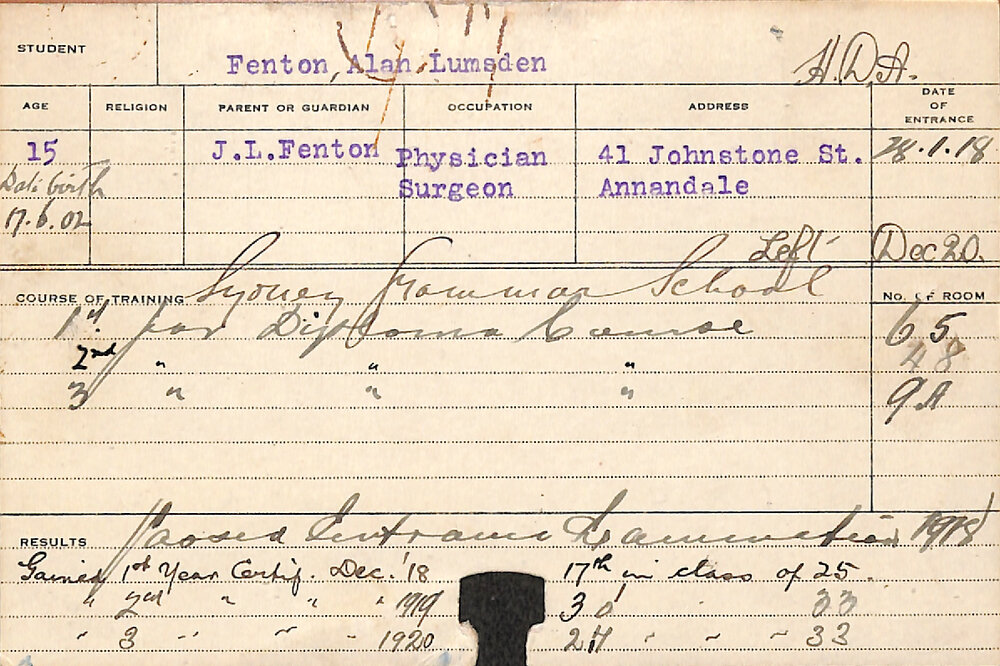 STUDENT
Fenton, Alan Lumsden
H.D.A.
AGE RELIGION PARENT OR GUARDIAN OCCUPATION ADDRESS DATE OF ENTRANCE
15 J.L.Fenton Physician 41 Johnstone St. 28.1.18
Surgeon Annandale
Date birth
17.6.02
Left Dec 20.
Sydney Grammar School
COURSE OF TRAINING No. OF ROOM
1st year Diploma Course 65
2nd " " " 48
3 " " " 9A
RESULTS Passed Entrance Examination 1918
Gained 1st Year Certif. Dec. '18 17th in class of 25.
" 2nd " " " 1919 30 " 33
" 3 " " " 1920 " " " 33